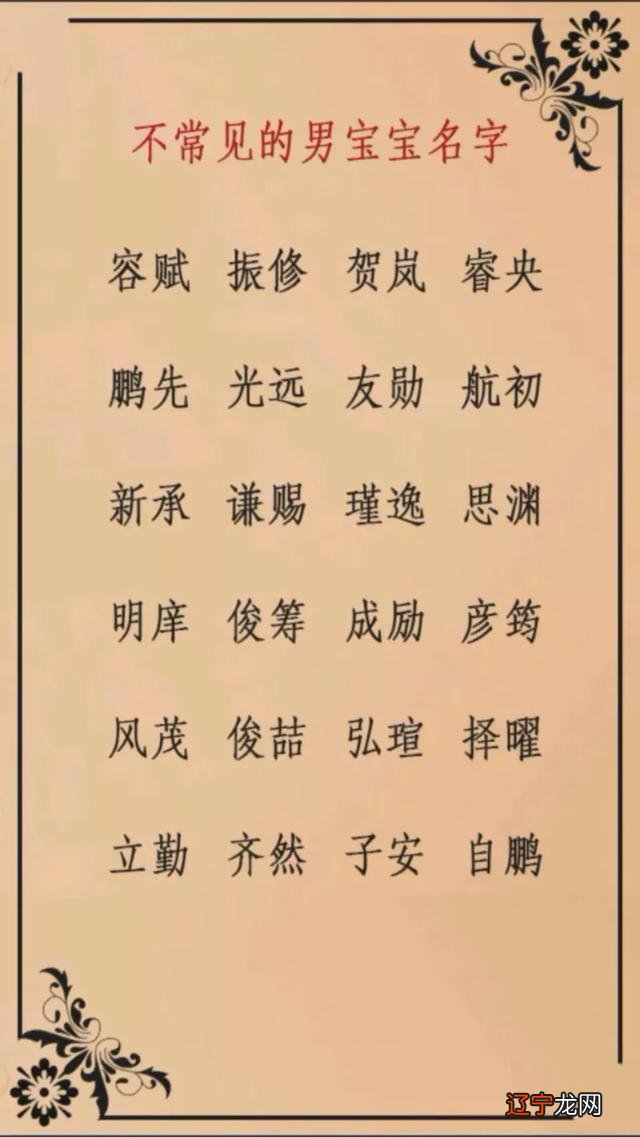 不常见的男宝宝名字
容赋 振修 贺岚 睿央
鹏先 光远 友勋 航初
新承 谦赐 瑾逸 思渊
明庠 俊筹 成励 彦筠
风茂 俊喆 弘瑄 择曜
立勤 齐然 子安 自鹏
辽宁龙网